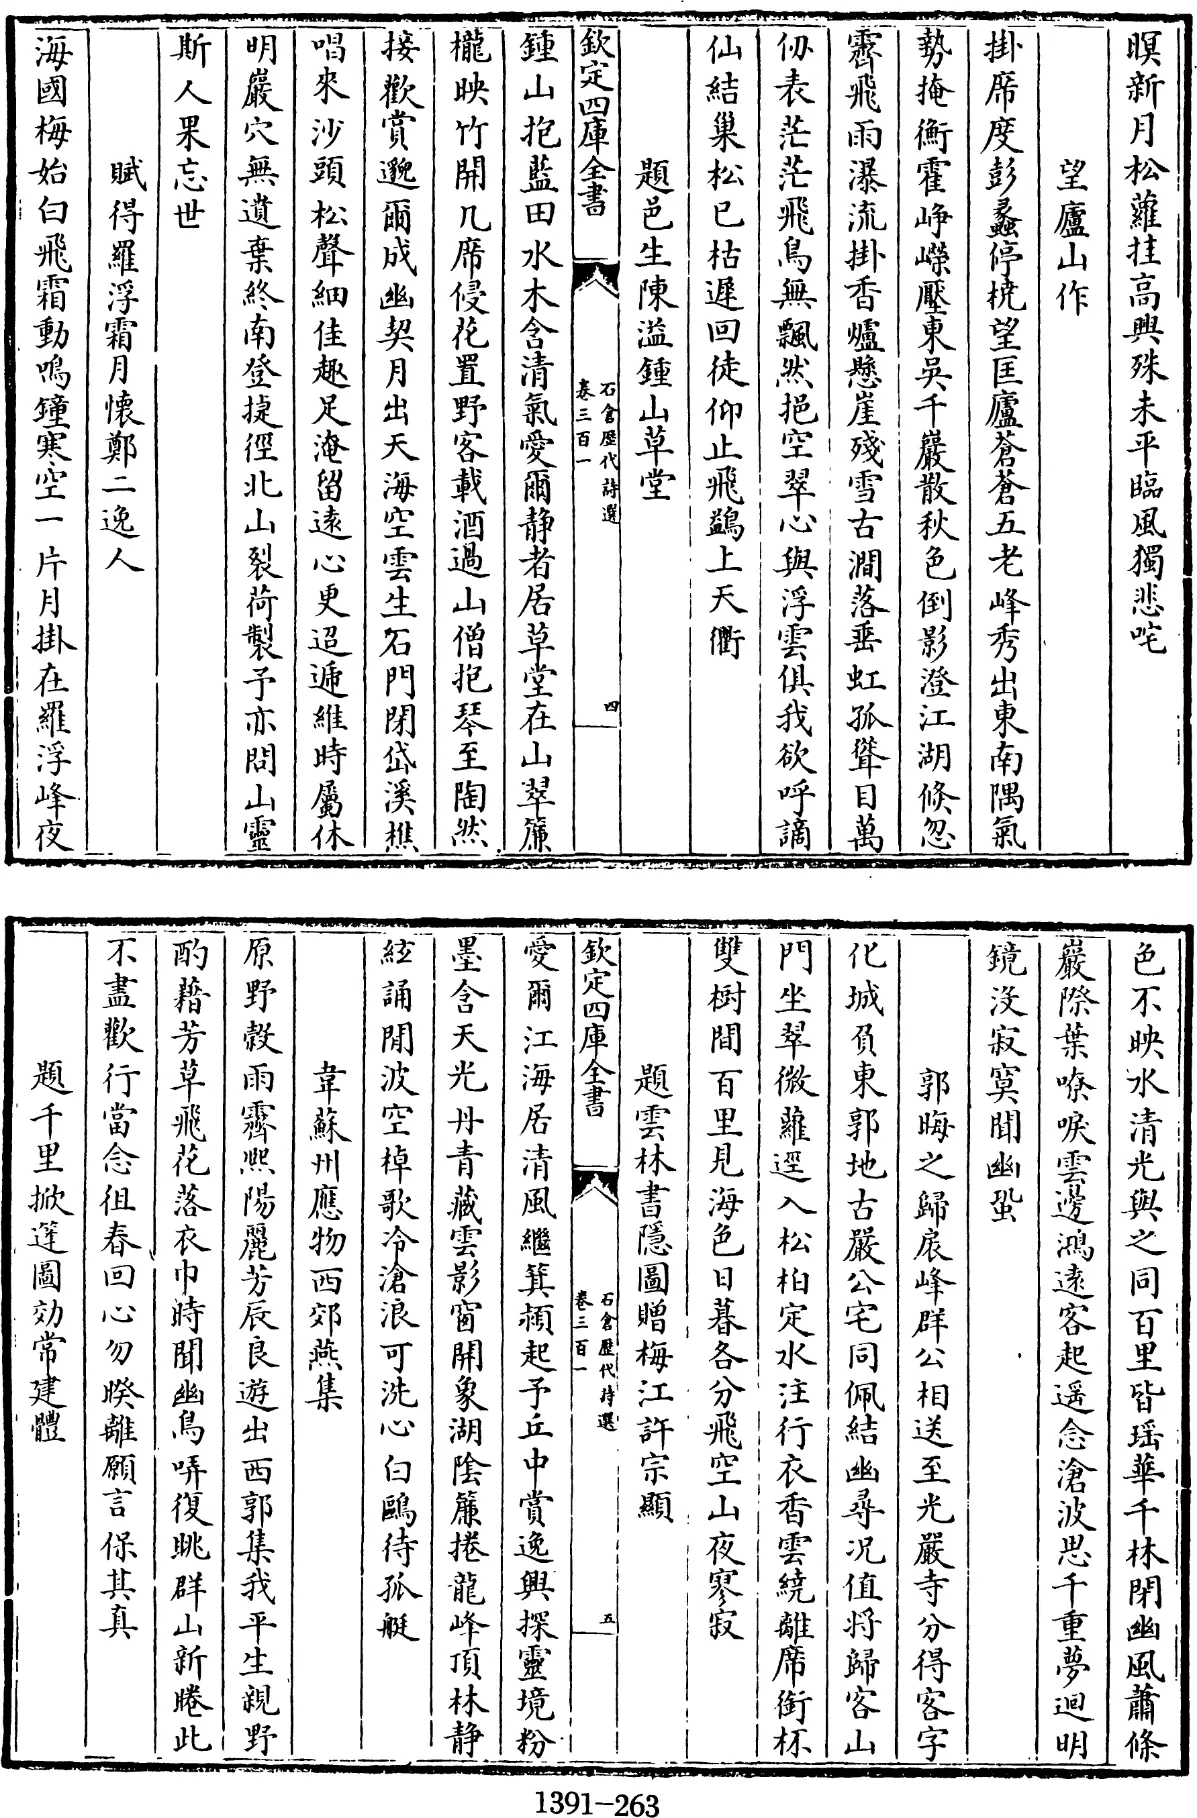 暝新月松蘿挂高興殊未平臨風獨悲咤
望廬山作
掛席度彭蠡停橈望匡廬蒼蒼五老峰秀出東南隅氣
勢掩衡霍崢嶸壓東吳千巖散秋色倒影澄江湖倐忽
霽飛雨瀑流掛香爐懸崖殘雪古澗落垂虹孤聳目萬
仞表茫茫飛鳥無飄然挹空翠心與浮雲俱我欲呼謫
仙結巢松已枯遲回徒仰止飛鷁上天衢
題邑生陳溢鍾山草堂
欽定四庫全書
石倉歷代詩選
卷三百一
四
鍾山抱藍田水木含清氣愛爾静者居草堂在山翠簾
櫳映竹開几席侵花置野客載酒過山僧抱琴至陶然
接歡賞邈爾成幽契月出天海空雲生石門閉岱溪樵
唱來沙頭松聲細佳趣足淹留遠心更迢遞維時屬休
明巖穴無遺棄終南登捷徑北山裂荷製予亦問山靈
斯人果忘世
賦得羅浮霜月懷鄭二逸人
海國梅始白飛霜動鳴鐘寒空一片月掛在羅浮峰夜
色不映水清光與之同百里皆瑶華千林閉幽風蕭條
巖際葉嘹唳雲邊鴻遠客起遥念滄波思千重夢迴明
鏡沒寂寞聞幽蛩
郭晦之歸扆峰群公相送至光嚴寺分得客字
化城負東郭地古嚴公宅同佩結幽尋况值将歸客山
門坐翠微蘿逕入松柏定水注行衣香雲繞離席銜杯
雙樹間百里見海色日暮各分飛空山夜寥寂
題雲林書隱圖贈梅江許宗顯
欽定四庫全書
石倉歷代詩選
卷三百一
五
愛爾江海居清風繼箕潁起予丘中賞逸興探靈境粉
墨含天光丹青藏雲影窗開象湖陰簾捲龍峰頂林静
絃誦閒波空棹歌冷滄浪可洗心白鷗待孤艇
韋蘇州應物西郊燕集
原野穀雨霽熙陽麗芳辰良遊出西郭集我平生親野
酌藉芳草飛花落衣巾時聞幽鳥哢復眺群山新睠此
不盡歡行當念徂春回心勿暌離願言保其真
題千里掀篷圖効常建體
1391-263